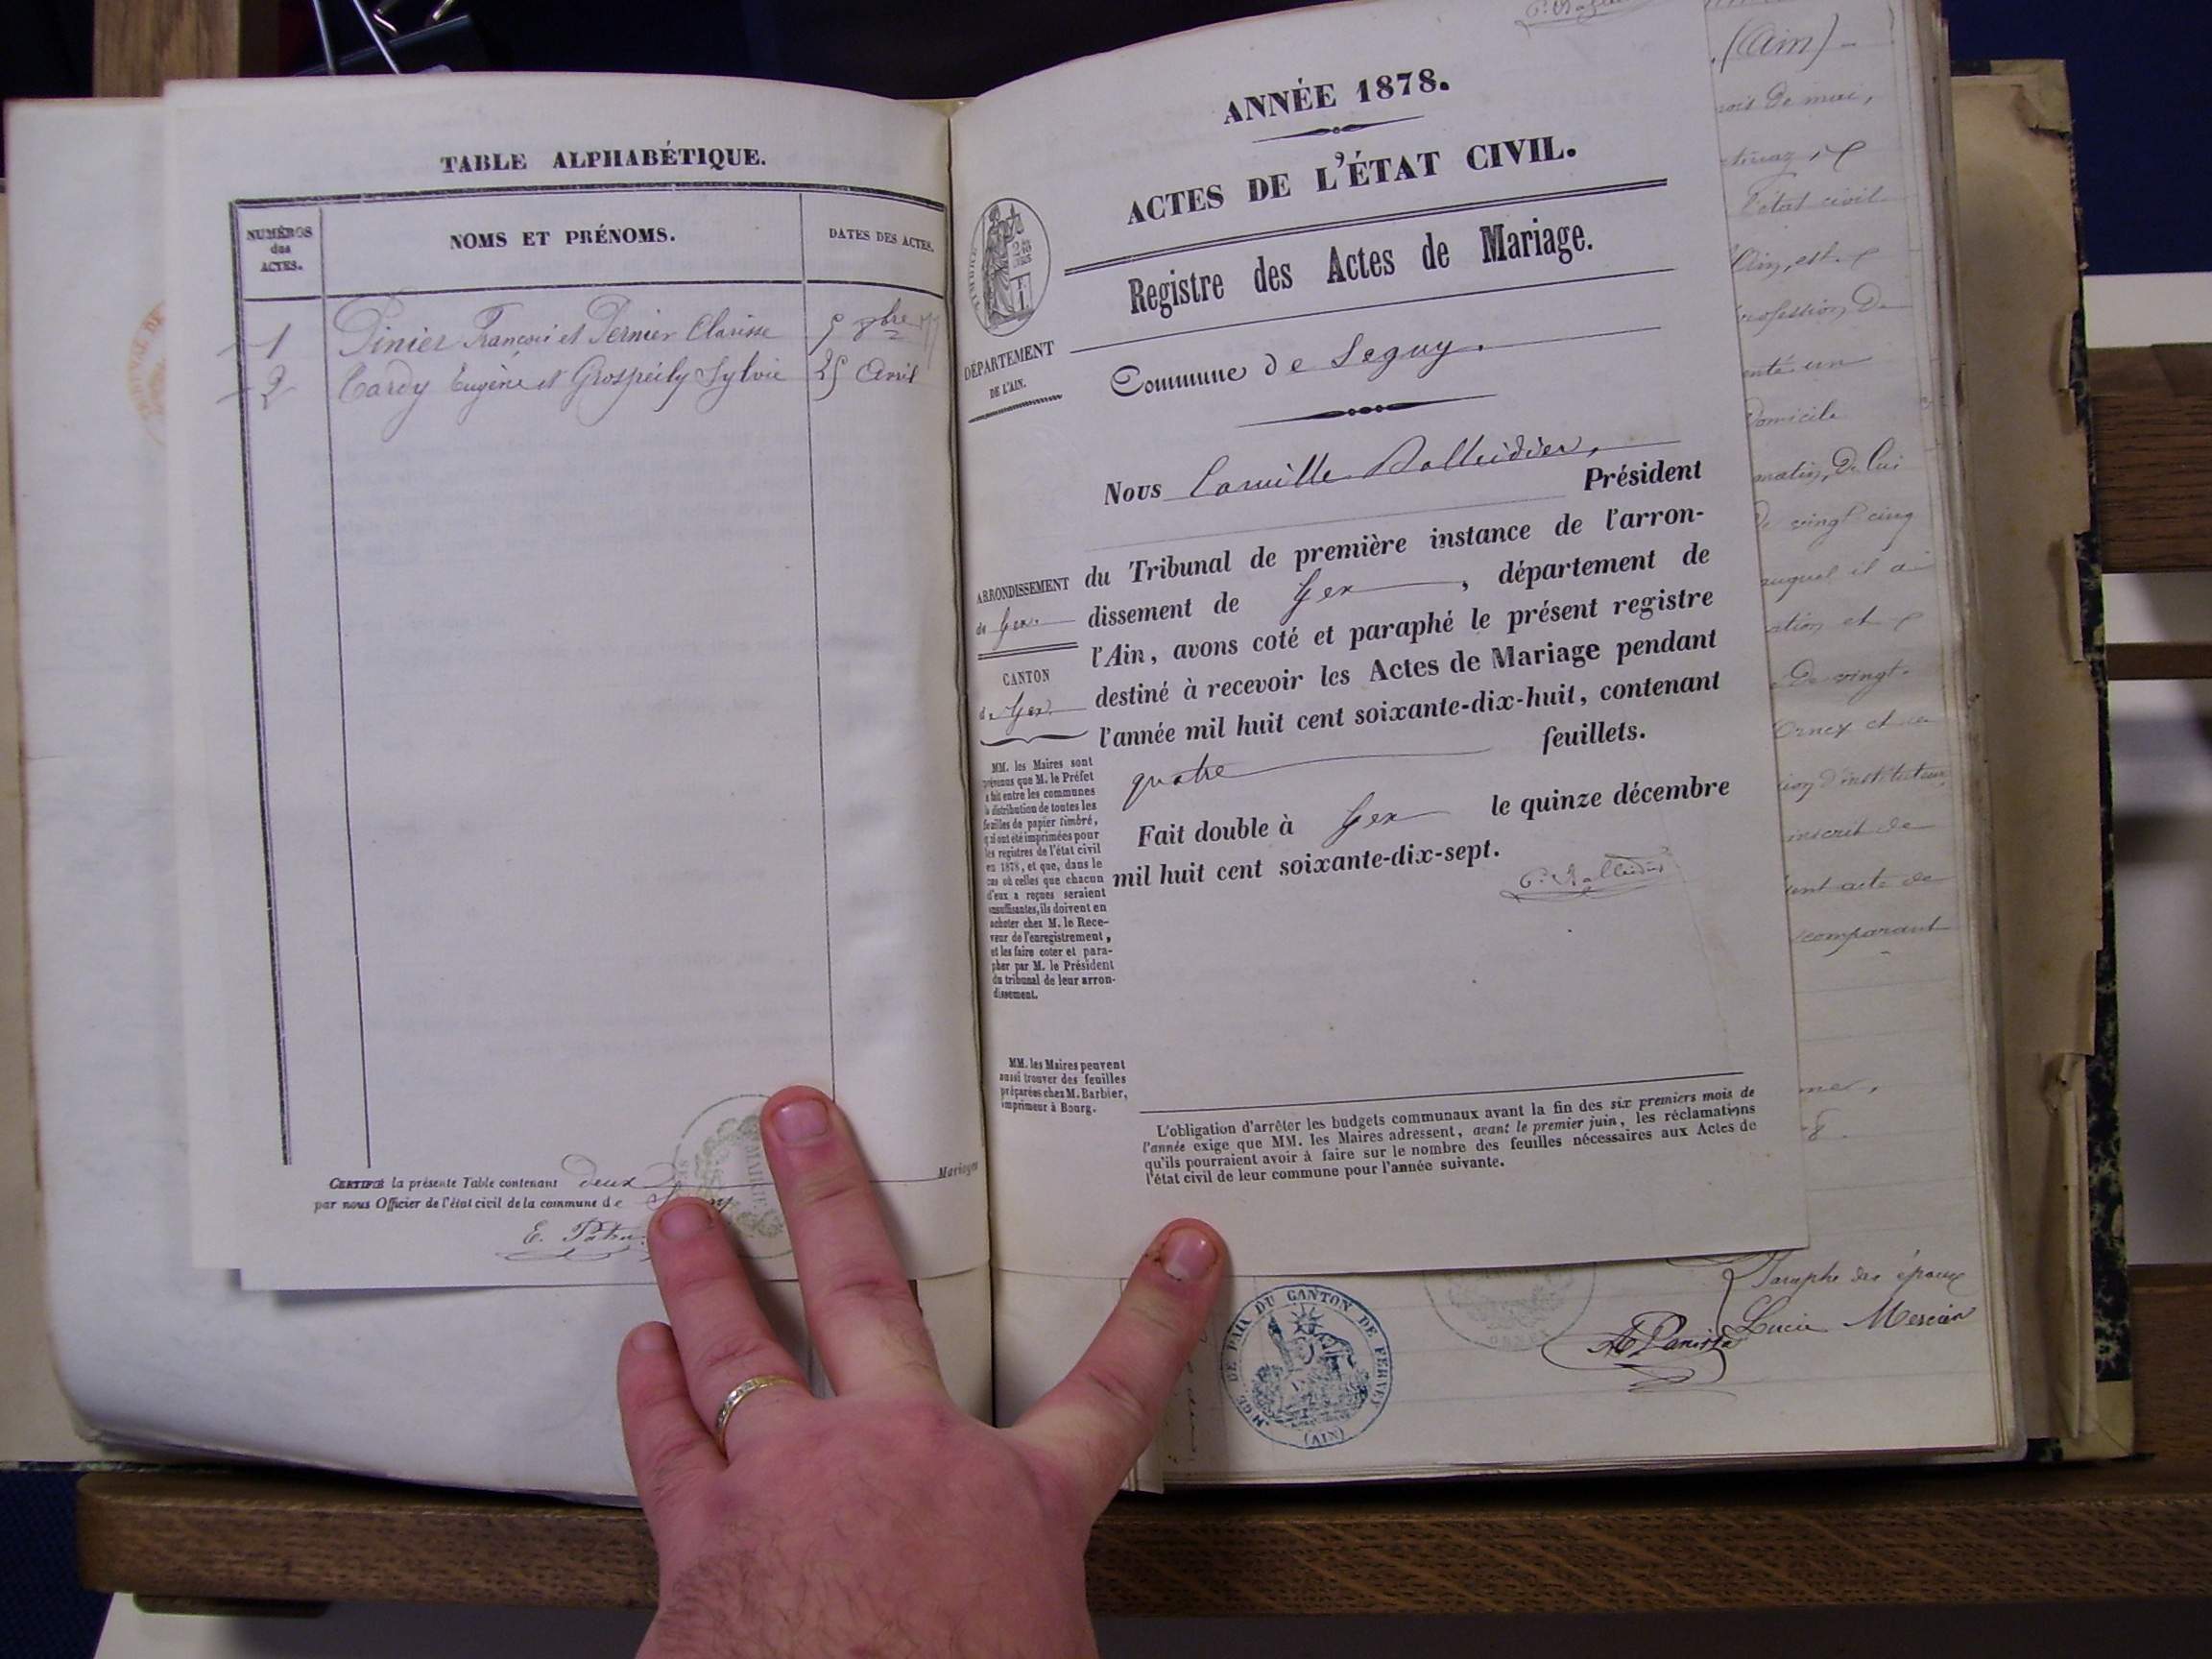 TABLE ALPHABÉTIQUE.
NUMÉROS
des
ACTES.
NOMS ET PRÉNOMS.
DATES DES ACTES.
1 Pinier François et Pernier Clarisse
2 Tardy Eugène et Grospeily Sylvie 25 Avril
CERTIFIÉ la présente Table contenant deux Mariages
par nous Officier de l'état civil de la commune de
ANNÉE 1878.
ACTES DE L'ÉTAT CIVIL.
Registre des Actes de Mariage.
DÉPARTEMENT
DE L'AIN.
Commune de Seguy.
Nous Camille Balleidier,
Président
du Tribunal de première instance de l'arron-
dissement de Gex, département de
l'Ain, avons coté et paraphé le présent registre
destiné à recevoir les Actes de Mariage pendant
l'année mil huit cent soixante-dix-huit, contenant
quatre feuillets.
Fait double à Gex le quinze décembre
mil huit cent soixante-dix-sept.
ARRONDISSEMENT
de Gex
CANTON
de Gex
MM. les Maires sont
prévenus que M. le Préfet
a fait entre les communes
la distribution de toutes les
feuilles de papier timbré,
qui ont été imprimées pour
les registres de l'état civil
en 1878, et que, dans le
cas où celles que chacun
d'eux a reçues seraient
insuffisantes, ils doivent en
acheter chez M. le Rece-
veur de l'enregistrement,
et les faire coter et para-
pher par M. le Président
du tribunal de leur arron-
dissement.
MM. les Maires peuvent
aussi trouver des feuilles
préparées chez M. Barbier,
imprimeur à Bourg.
L'obligation d'arrêter les budgets communaux avant la fin des six premiers mois de
l'année exige que MM. les Maires adressent, avant le premier juin, les réclamations
qu'ils pourraient avoir à faire sur le nombre des feuilles nécessaires aux Actes de
l'état civil de leur commune pour l'année suivante.
(Ain)
l'état civil
profession de
domicile
matin, de lui
de vingt cinq
auquel il a
de vingt-
Ornex et
inscrit de
acte de
comparant
Paraphe des époux
Lucie Mercier
DE PAIX DU CANTON DE FERNEY
(AIN)